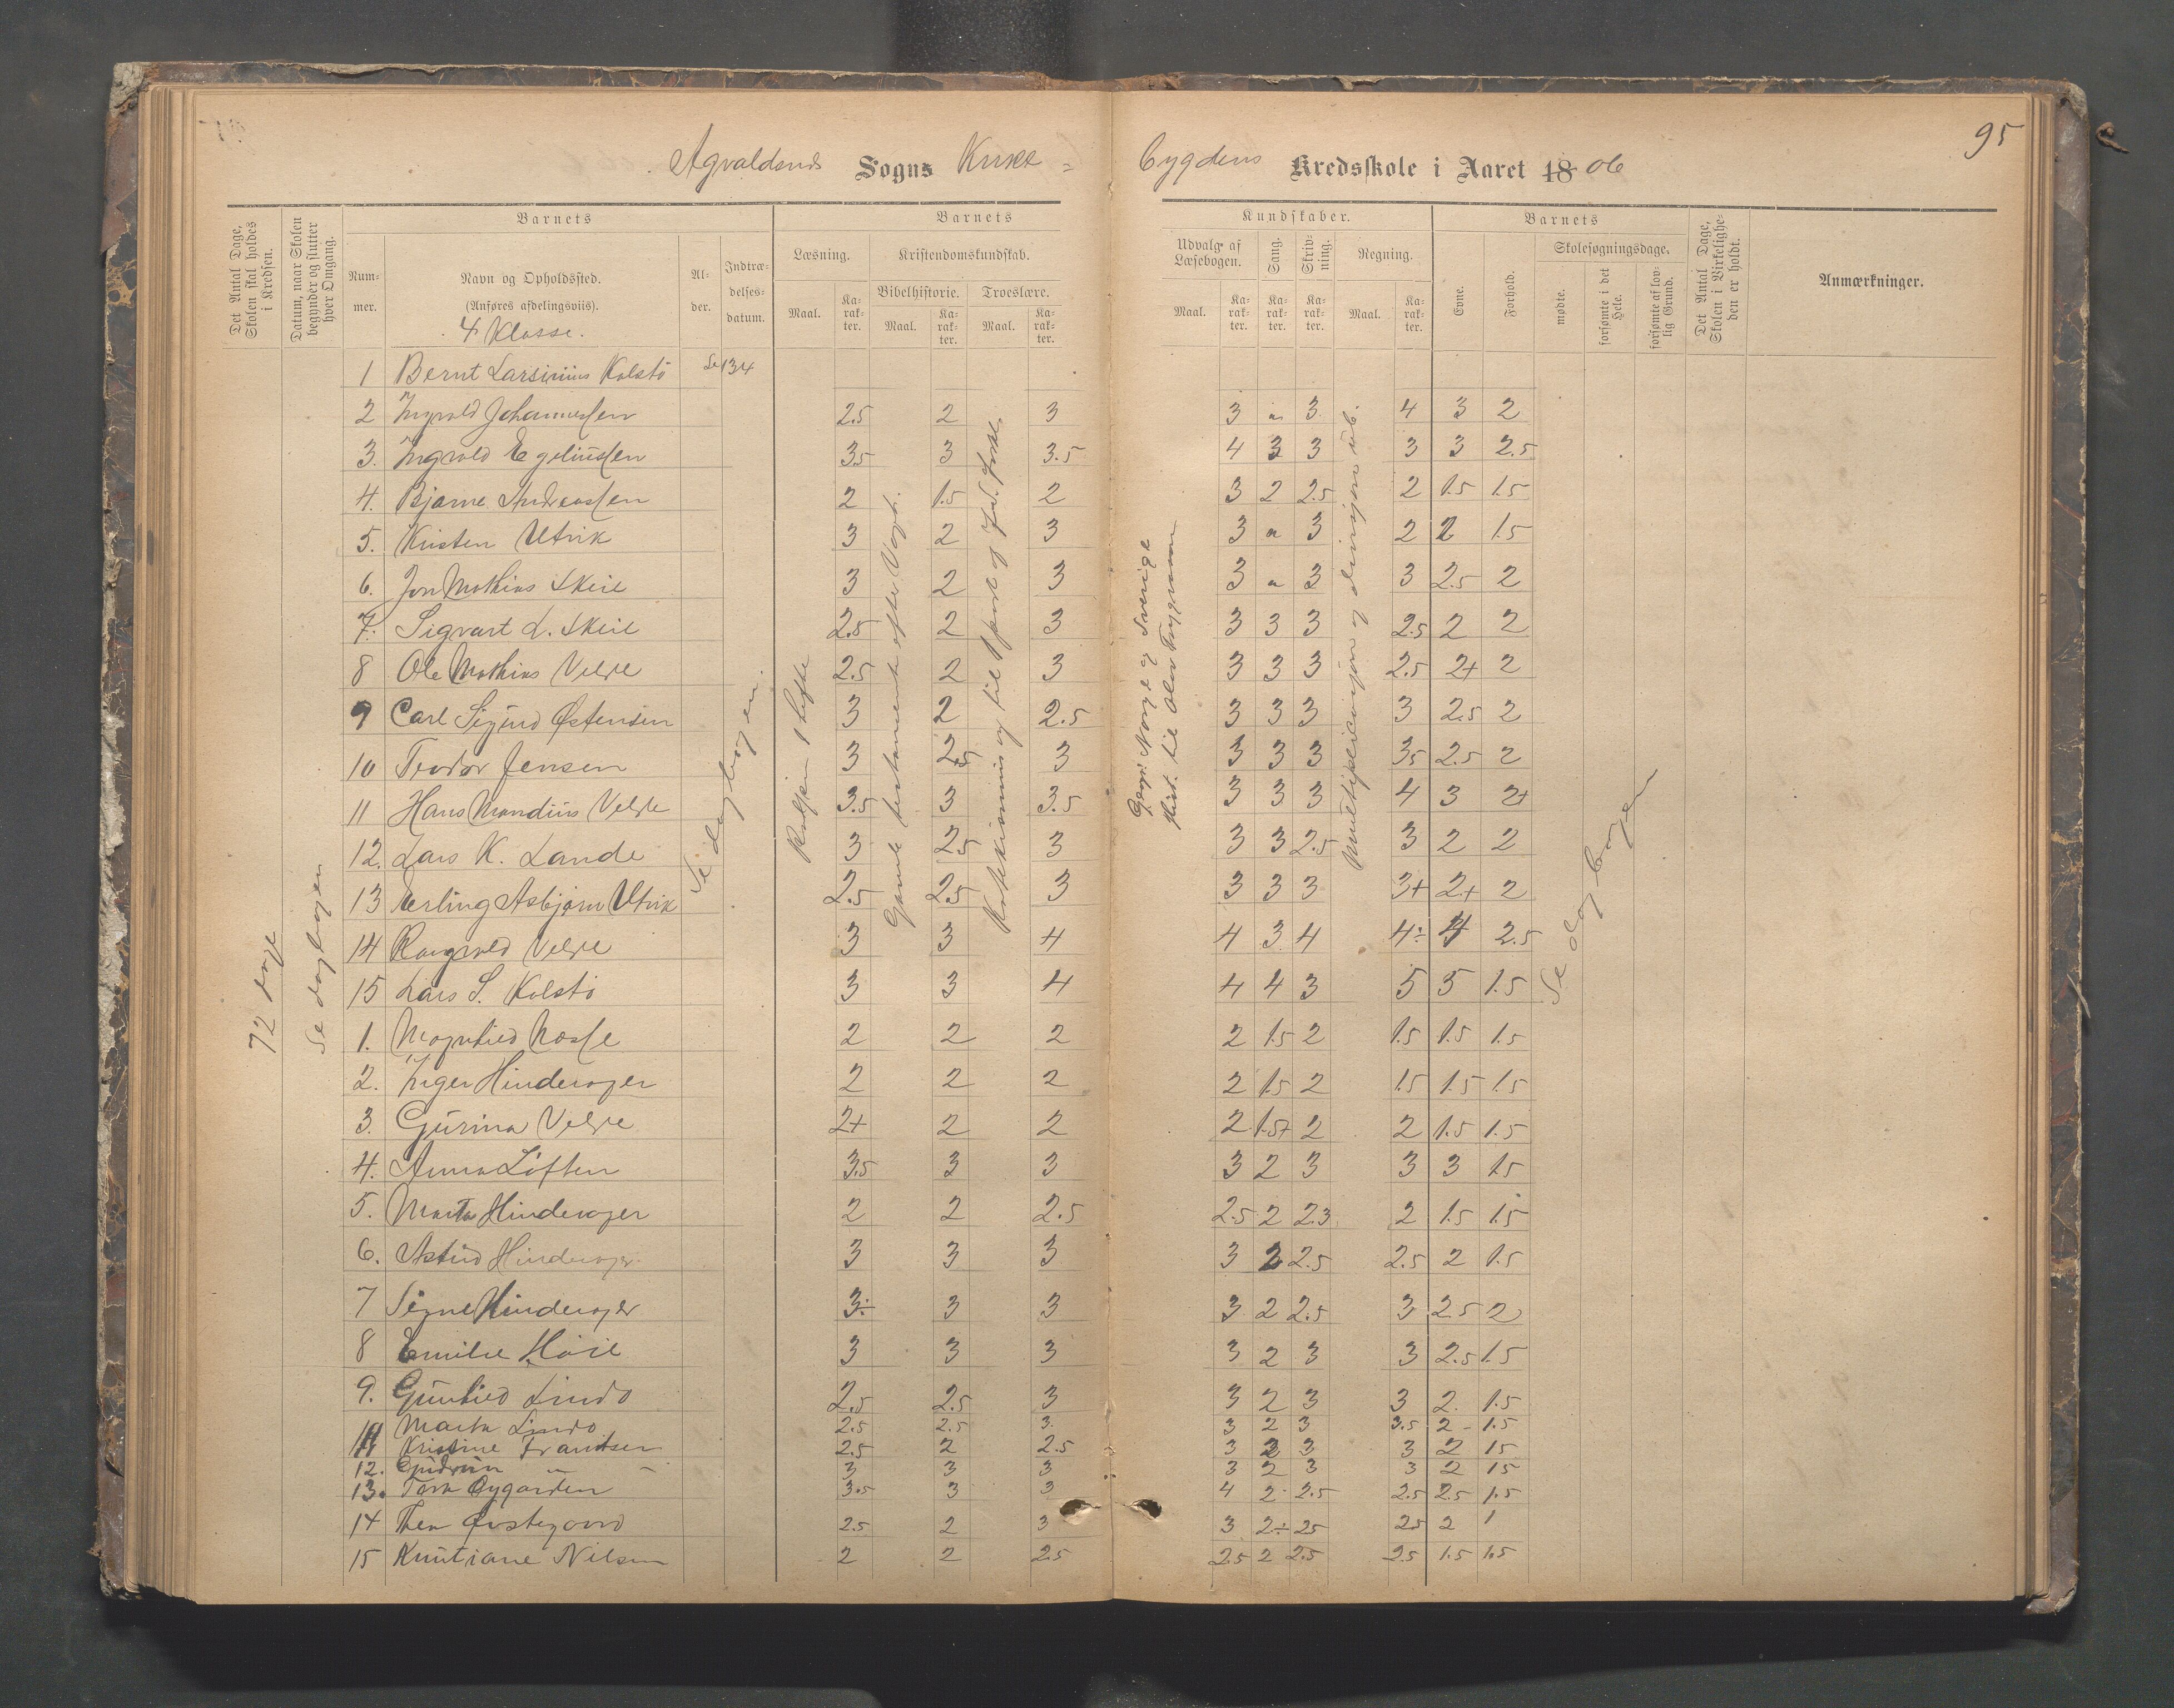 95
Agvaldsnes Sogns Kirke = bygdens Kredsskole i Aaret 18 06
Det Antal Dage, Skolen skal holdes i Kredsen.
Datum, naar Skolen begynder og slutter hver Omgang.
Barnets
Nummer.
Navn og Opholdssted.
(Anføres afdelingsviis).
4 Klasse.
Alder.
Indtrædelsesdatum.
Barnets Kundskaber.
Læsning.
Maal.
Karakter.
Kristendomskundskab.
Bibelhistorie.
Maal.
Karakter.
Troeslære.
Maal.
Karakter.
Udvalg af Læsebogen.
Maal.
Karakter.
Sang.
Karakter.
Skrivning.
Karakter.
Regning.
Maal.
Karakter.
Barnets
Evne.
Forhold.
Skolesøgningsdage.
mødte.
forsømte i det Hele.
forsømte af lovlig Grund.
Det Antal Dage, Skolen i Virkeligheden er holdt.
Anmærkninger.
72 dage
Se dagbogen
Se dagbogen.
Rolfsen 1 hefte
Gamle testamente efter Vogt.
Geogr. Norge og Sverige
Hist. til Olav Trygvason
Multiplikasjon og divisjon
Se dagbogen
1 Bernt Larsinius Kolstø Se 134
2 Ingvald Johannesen 2.5 2 3 3 " 3 4 3 2
3. Ingvald Egeliussen 3.5 3 3.5 4 3 3 3 3 2.5
4. Bjarne Andreassen 2 1.5 2 3 2 2.5 2 1.5 1.5
5. Kristen Utvik 3 2 3 3 " 3 2 2 1.5
6. Jon Mathias Skeie 3 2 3 3 " 3 3 2.5 2
7. Sigvart L. Skeie 2.5 2 3 3 3 3 2.5 2 2
8 Ole Mathias Velle 2.5 2 3 3 3 3 2.5 2+ 2
9 Carl Sigurd Østensen 3 2 2.5 3 3 3 3 2.5 2
10 Teodor Jensen 3 2.5 3 3 3 3 3.5 2.5 2
11 Hans Mandius Velle 3.5 3 3.5 3 3 3 4 3 2+
12. Lars K. Lande 3 2.5 3 3 3 2.5 3 2 2
13 Erling Asbjørn Utvik 2.5 2.5 3 3 3 3 3+ 2+ 2
14 Rangvald Velle 3 3 4 4 3 4 4÷ 4 2.5
15 Lars S. Kolstø 3 3 4 4 4 3 5 5 1.5
1. Magnhild Nasse 2 2 2 2 1.5 2 1.5 1.5 1.5
2. Inger Hinderager 2 2 2 2 1.5 2 1.5 1.5 1.5
3. Gurina Velle 2+ 2 2 2 1.5+ 2 2 1.5 1.5
4. Anna Løften 3.5 3 3 3 2 3 3 3 1.5
5. Marta Hinderager 2 2 2.5 2.5 2 2.3 2 1.5 1.5
6. Astrid Hinderager 3 3 3 3 2 2.5 2.5 2 1.5
7 Signe Hinderager 3÷ 3 3 3 2 2.5 3 2.5 2
8 Emilie Høie 3 3 3 3 2 3 3 2.5 1.5
9. Gunhild Lindø 2.5 2.5 3 3 2 3 3 2. 1.5
10 Marta Lindø 2.5 2.5 3. 3 2 3 3.5 2 - 1.5
11 Kristine Frantsen 2.5 2 2.5 3 2 3 3 2 15
12. Gudrun " - 3 3 3 3 2 3 3 2 15
13. Tora Øygarden 3.5 3 3 4 2 2.5 2.5 2.5 1.5
14 Thea Østegaard 2.5 2 3 3 2÷ 25 25 2 1
15 Kristiane Nilsen 2 2 2.5 2.5 2 2.5 2.5 1.5 1.5